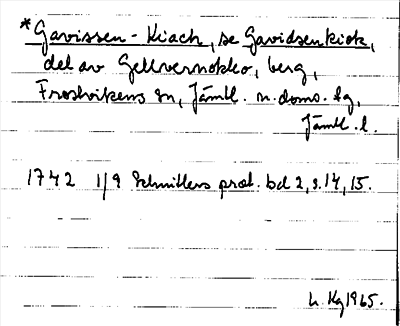 *Gavissen-Kiach, se Gavidsenkiok,
del av Gellvernokko, berg,
Frostvikens sn, Jämtl. n. doms. tg,
Jämtl. l.
1742 1/9 Schnitlers prot. bd 2, s. 14, 15.
L. Hg 1965.